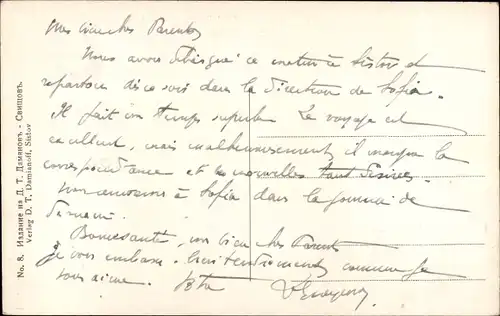 Mes bien chers Parents
Nous avons débarqué ce matin à Sistov et
repartons ce soir dans la direction de Sofia.
Il fait un temps superbe. Le voyage est
excellent, mais malheureusement il manque la
correspondance et les nouvelles tant désirées.
Nous arriverons à Sofia dans la journée de
demain.
Bonne santé, mes bien chers Parents
je vous embrasse bien tendrement comme je
vous aime. Votre
No. 8. Издание на Д. Т. Дамяновъ - Свищовъ.
Verlag D. T. Damianoff, Sistov